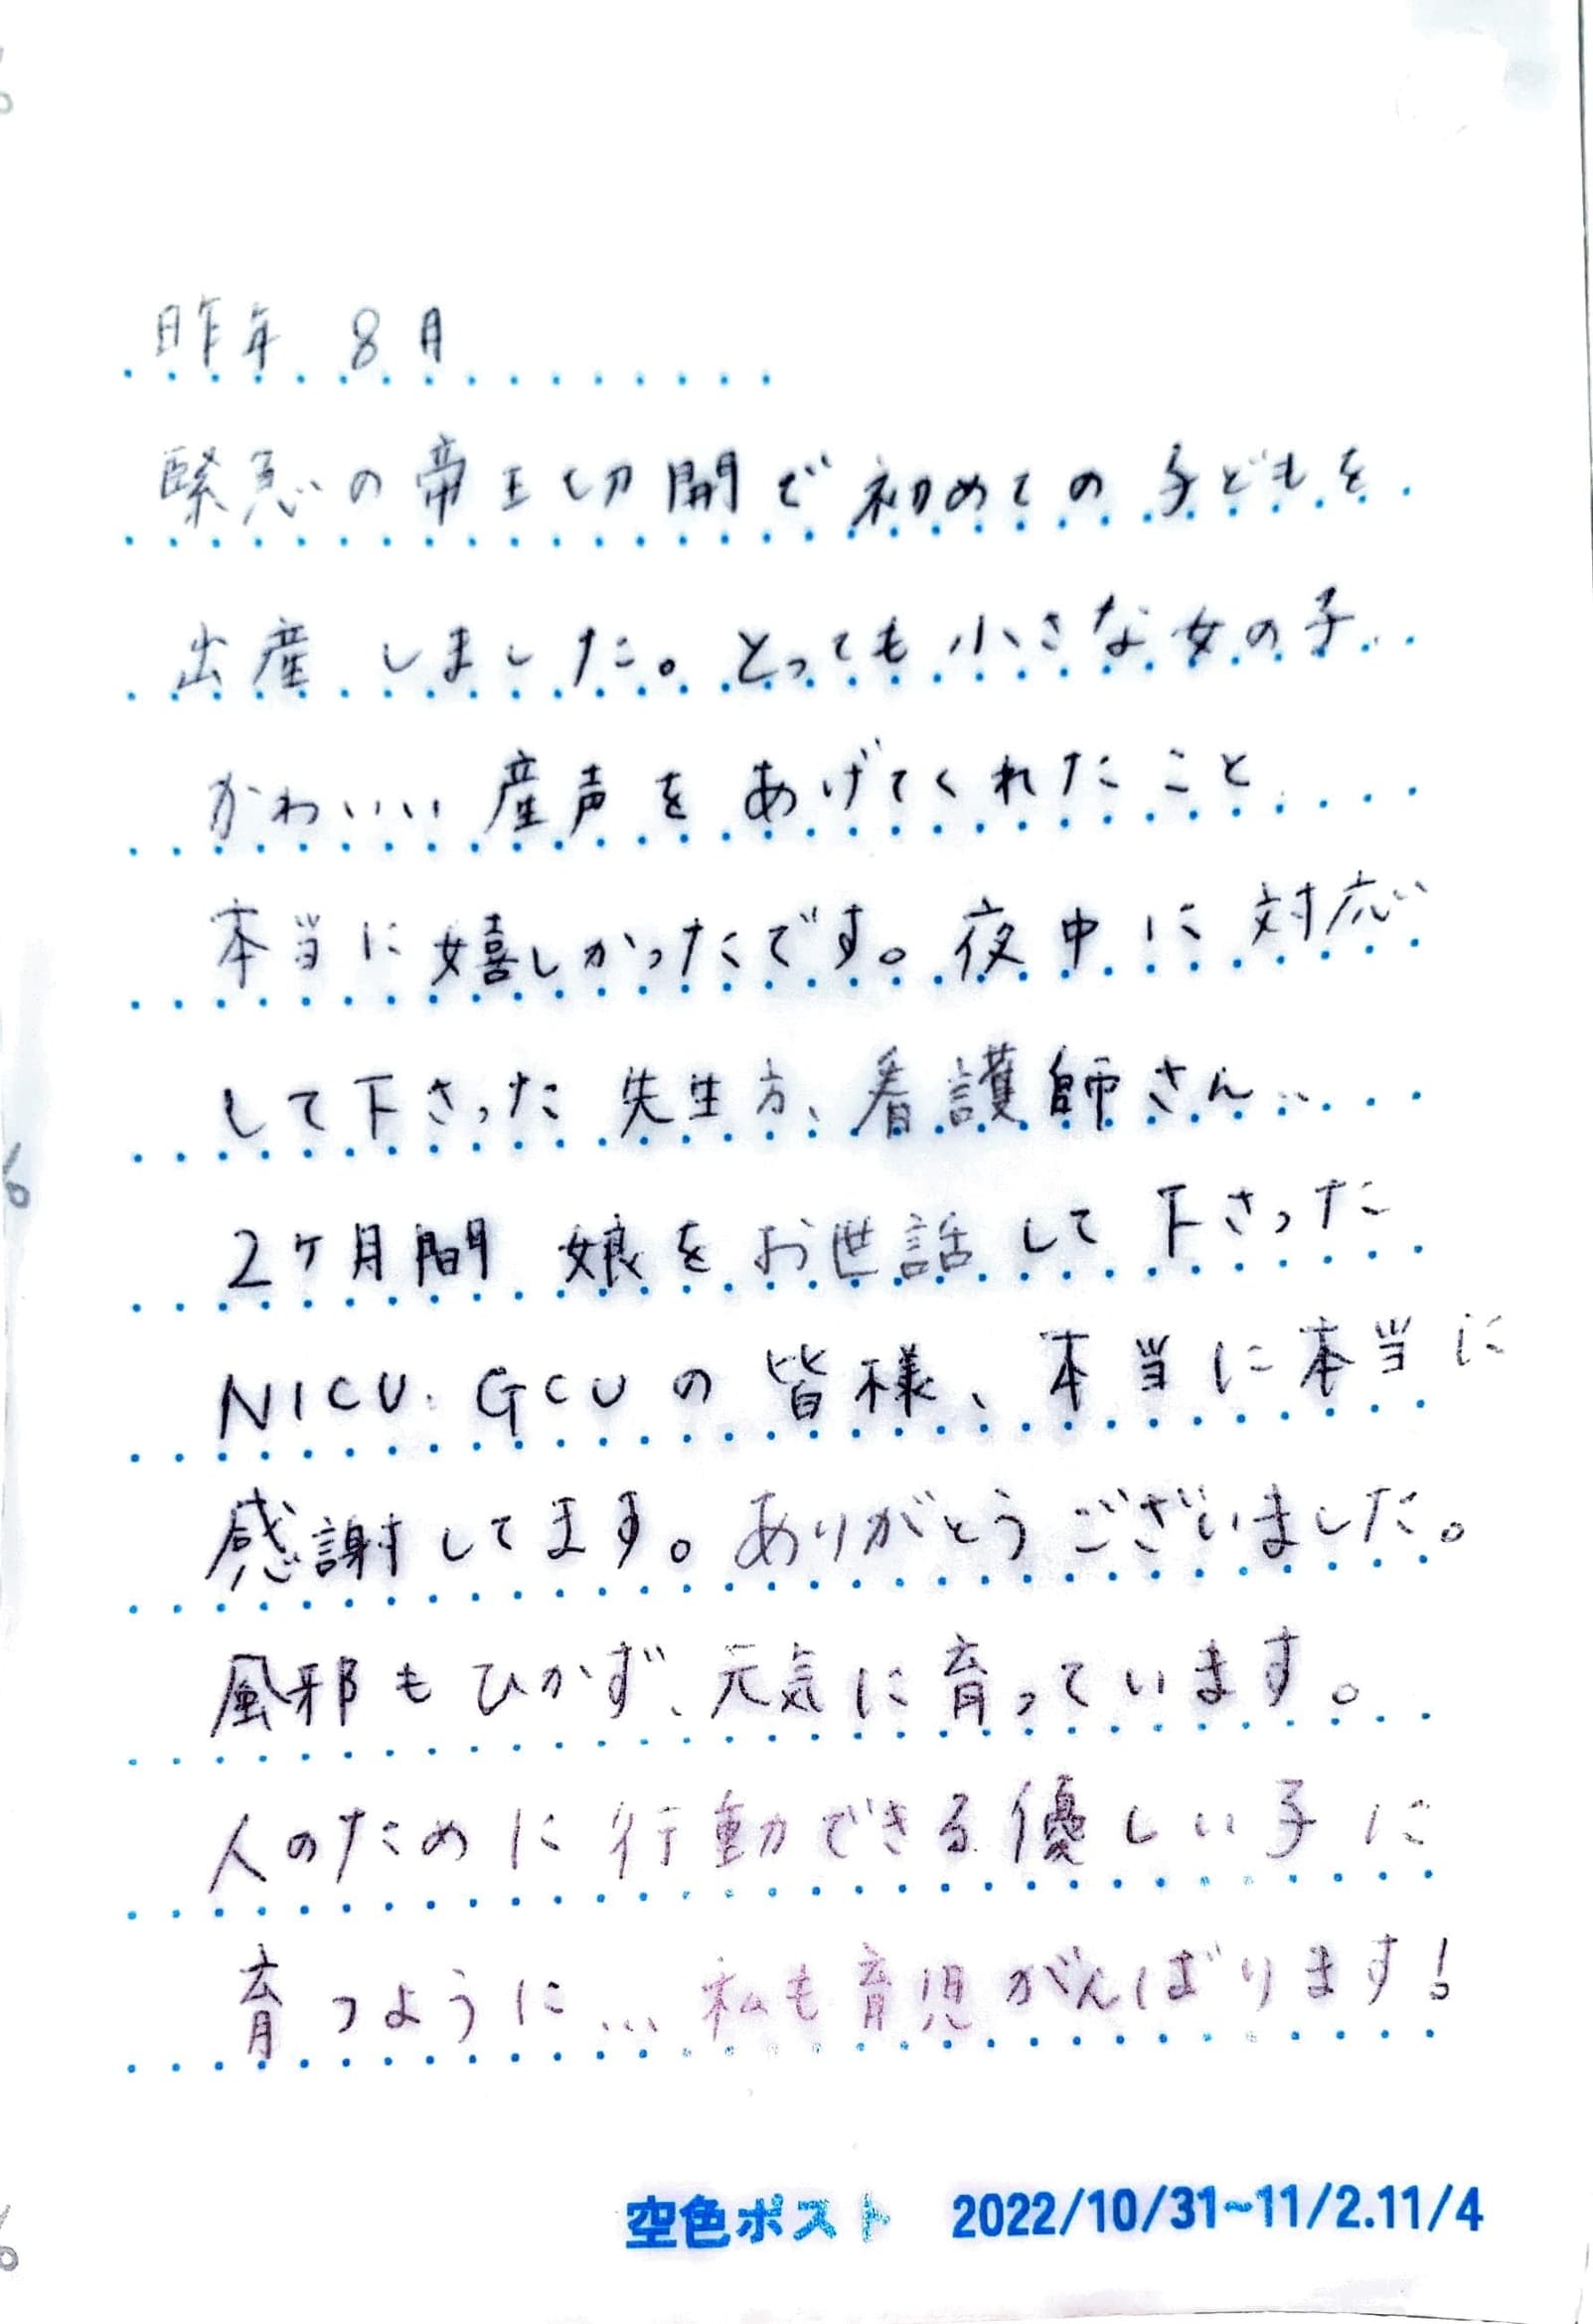 昨年 8月
緊急の帝王切開で初めての子どもを
出産しました。とっても小さな女の子
かわいい産声をあげてくれたこと
本当に嬉しかったです。夜中に対応
して下さった先生方、看護師さん、
2ヶ月間 娘をお世話して下さった
NICU. GCUの皆様、本当に本当に
感謝してます。ありがとうございました。
風邪もひかず、元気に育っています。
人のために行動できる優しい子に
育つように… 私も育児がんばります!
空色ポスト 2022/10/31~11/2.11/4